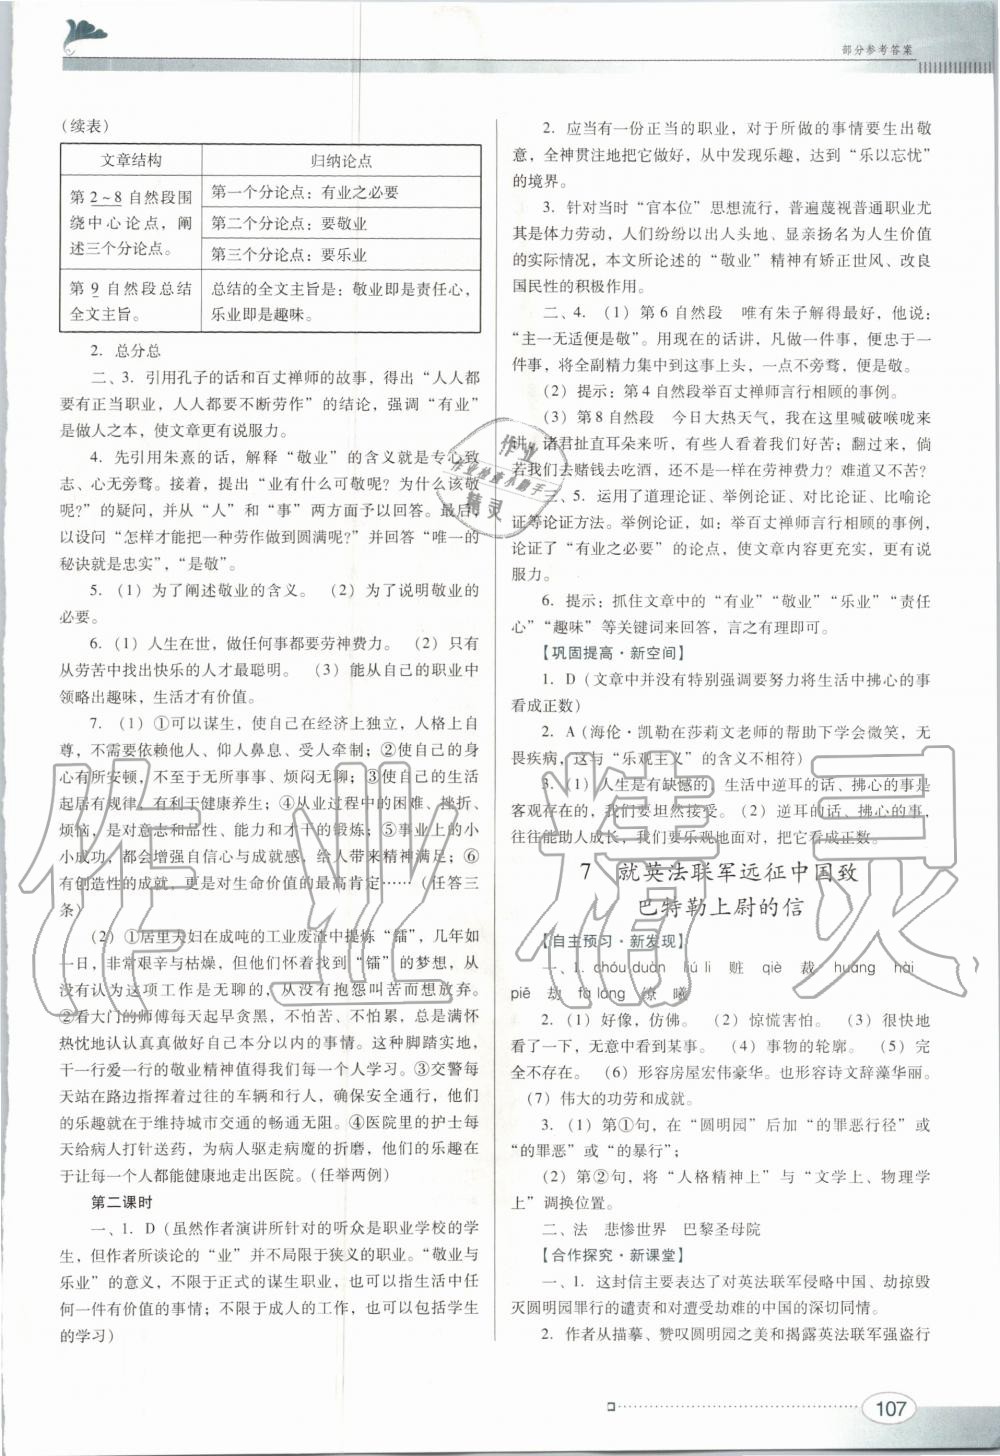 部分参考答案
（续表）
文章结构 归纳论点
第 2～8 自然段围绕中心论点，阐述三个分论点。
第一个分论点：有业之必要
第二个分论点：要敬业
第三个分论点：要乐业
第 9 自然段总结全文主旨。
总结的全文主旨是：敬业即是责任心，乐业即是趣味。
2. 总分总
二、3. 引用孔子的话和百丈禅师的故事，得出“人人都
要有正当职业，人人都要不断劳作”的结论，强调“有业”
是做人之本，使文章更有说服力。
4. 先引用朱熹的话，解释“敬业”的含义就是专心致
志、心无旁骛。接着，提出“业有什么可敬呢？为什么该敬
呢?”的疑问，并从“人”和“事”两方面予以回答。最后，
以设问“怎样才能把一种劳作做到圆满呢?”并回答“唯一的
秘诀就是忠实”，“是敬”。
5.（1）为了阐述敬业的含义。（2）为了说明敬业的
必要。
6.（1）人生在世，做任何事都要劳神费力。（2）只有
从劳苦中找出快乐的人才最聪明。（3）能从自己的职业中
领略出趣味，生活才有价值。
7.（1）①可以谋生，使自己在经济上独立，人格上自
尊，不需要依赖他人、仰人鼻息、受人牵制；②使自己的身
心有所安顿，不至于无所事事、烦闷无聊；③使自己的生活
起居有规律，有利于健康养生；④从业过程中的困难、挫折、
烦恼，是对意志和品性、能力和才干的锻炼；⑤事业上的小
小成功，都会增强自信心与成就感，给人带来精神满足；⑥
有创造性的成就，更是对生命价值的最高肯定……（任答三
条）
（2）①居里夫妇在成吨的工业废渣中提炼“镭”，几年如
一日，非常艰辛与枯燥，但他们怀着找到“镭”的梦想，从
没有认为这项工作是无聊的，从没有抱怨叫苦而想放弃。
②看大门的师傅每天起早贪黑，不怕苦、不怕累，总是满怀
热忱地认认真真做好自己本分以内的事情。这种脚踏实地，
干一行爱一行的敬业精神值得我们每一个人学习。③交警每
天站在路边指挥着过往的车辆和行人，确保安全通行，他们
的乐趣就在于维持城市交通的畅通无阻。④医院里的护士每
天给病人打针送药，为病人驱走病魔的折磨，他们的乐趣在
于让每一个人都能健康地走出医院。（任举两例）
第二课时
一、1. D（虽然作者演讲所针对的听众是职业学校的学
生，但作者所谈论的“业”并不局限于狭义的职业。“敬业与
乐业”的意义，不限于正式的谋生职业，也可以指生活中任
何一件有价值的事情；不限于成人的工作，也可以包括学生
的学习）
2. 应当有一份正当的职业，对于所做的事情要生出敬
意，全神贯注地把它做好，从中发现乐趣，达到“乐以忘忧”
的境界。
3. 针对当时“官本位”思想流行，普遍蔑视普通职业尤
其是体力劳动，人们纷纷以出人头地、显亲扬名为人生价值
的实际情况，本文所论述的“敬业”精神有矫正世风、改良
国民性的积极作用。
二、4.（1）第 6 自然段 唯有朱子解得最好，他说：
“主一无适便是敬”。用现在的话讲，凡做一件事，便忠于一
件事，将全副精力集中到这事上头，一点不旁骛，便是敬。
（2）提示：第 4 自然段举百丈禅师言行相顾的事例。
（3）第 8 自然段 今日大热天气，我在这里喊破喉咙来
讲，诸君扯直耳朵来听，有些人看着我们好苦；翻过来，倘
若我们去赌钱去吃酒，还不是一样在劳神费力？难道又不苦？
三、5. 运用了道理论证、举例论证、对比论证、比喻论
证等论证方法。举例论证，如：举百丈禅师言行相顾的事例，
论证了“有业之必要”的论点，使文章内容更充实，更有说
服力。
6. 提示：抓住文章中的“有业”“敬业”“乐业”“责任
心”“趣味”等关键词来回答，言之有理即可。
【巩固提高·新空间】
1. D（文章中并没有特别强调要努力将生活中拂心的事
看成正数）
2. A（海伦·凯勒在莎莉文老师的帮助下学会微笑，无
畏疾病，这与“乐观主义”的含义不相符）
3.（1）人生是有缺憾的，生活中逆耳的话、拂心的事是
客观存在的，我们要坦然接受。（2）逆耳的话、拂心的事，
往往能助人成长，我们要乐观地面对，把它看成正数。
7 就英法联军远征中国致
巴特勒上尉的信
【自主预习·新发现】
一、1. chóu duàn liú li 赃 qiè 裁 huǎng hài
piē 劫 fà láng 缭 曦
2.（1）好像，仿佛。（2）惊慌害怕。（3）很快地
看了一下，无意中看到某事。（4）事物的轮廓。（5）完
全不存在。（6）形容房屋宏伟豪华。也形容诗文辞藻华丽。
（7）伟大的功劳和成就。
3.（1）第①句，在“圆明园”后加“的罪恶行径”或
“的罪恶”或“的暴行”；
（2）第②句，将“人格精神上”与“文学上、物理学
上”调换位置。
二、法 悲惨世界 巴黎圣母院
【合作探究·新课堂】
一、1. 这封信主要表达了对英法联军侵略中国、劫掠毁
灭圆明园罪行的谴责和对遭受劫难的中国的深切同情。
2. 作者从描摹、赞叹圆明园之美和揭露英法联军强盗行
107
作业精灵
作业
作业的最小助手
精灵